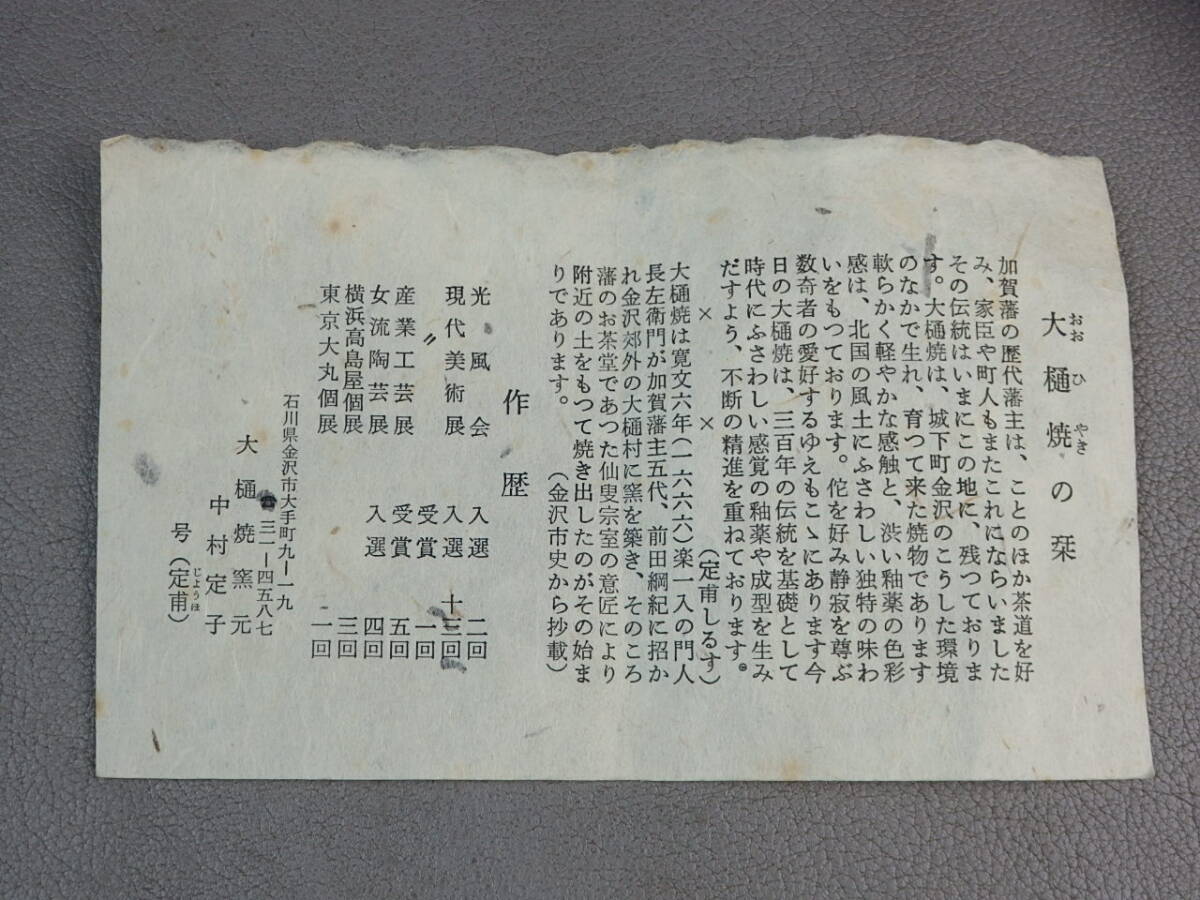 大樋焼の栞
おおひやき
加賀藩の歴代藩主は、ことのほか茶道を好
み、家臣や町人もまたこれにならいました
その伝統はいまにこの地に、残つておりま
す。大樋焼は、城下町金沢のこうした環境
のなかで生れ、育つて来た焼物であります
軟らかく軽やかな感触と、渋い釉薬の色彩
感は、北国の風土にふさわしい独特の味わ
いをもつております。侘を好み静寂を尊ぶ
数奇者の愛好するゆえもこゝにあります今
日の大樋焼は、三百年の伝統を基礎として
時代にふさわしい感覚の釉薬や成型を生み
だすよう、不断の精進を重ねております。
× × (定甫しるす)
大樋焼は寛文六年(一六六六)楽一入の門人
長左衛門が加賀藩主五代、前田綱紀に招か
れ金沢郊外の大樋村に窯を築き、そのころ
藩のお茶堂であつた仙叟宗室の意匠により
附近の土をもつて焼き出したのがその始ま
りであります。 (金沢市史から抄載)
作歴
光風会 入選 二回
現代美術展 入選 十三回
〃 受賞 一回
産業工芸展 受賞 五回
女流陶芸展 入選 四回
横浜高島屋個展 三回
東京大丸個展 一回
石川県金沢市大手町九ー一九
☎三一ー四五八七
大樋焼窯元
中村定子
号(定甫)
じようほ